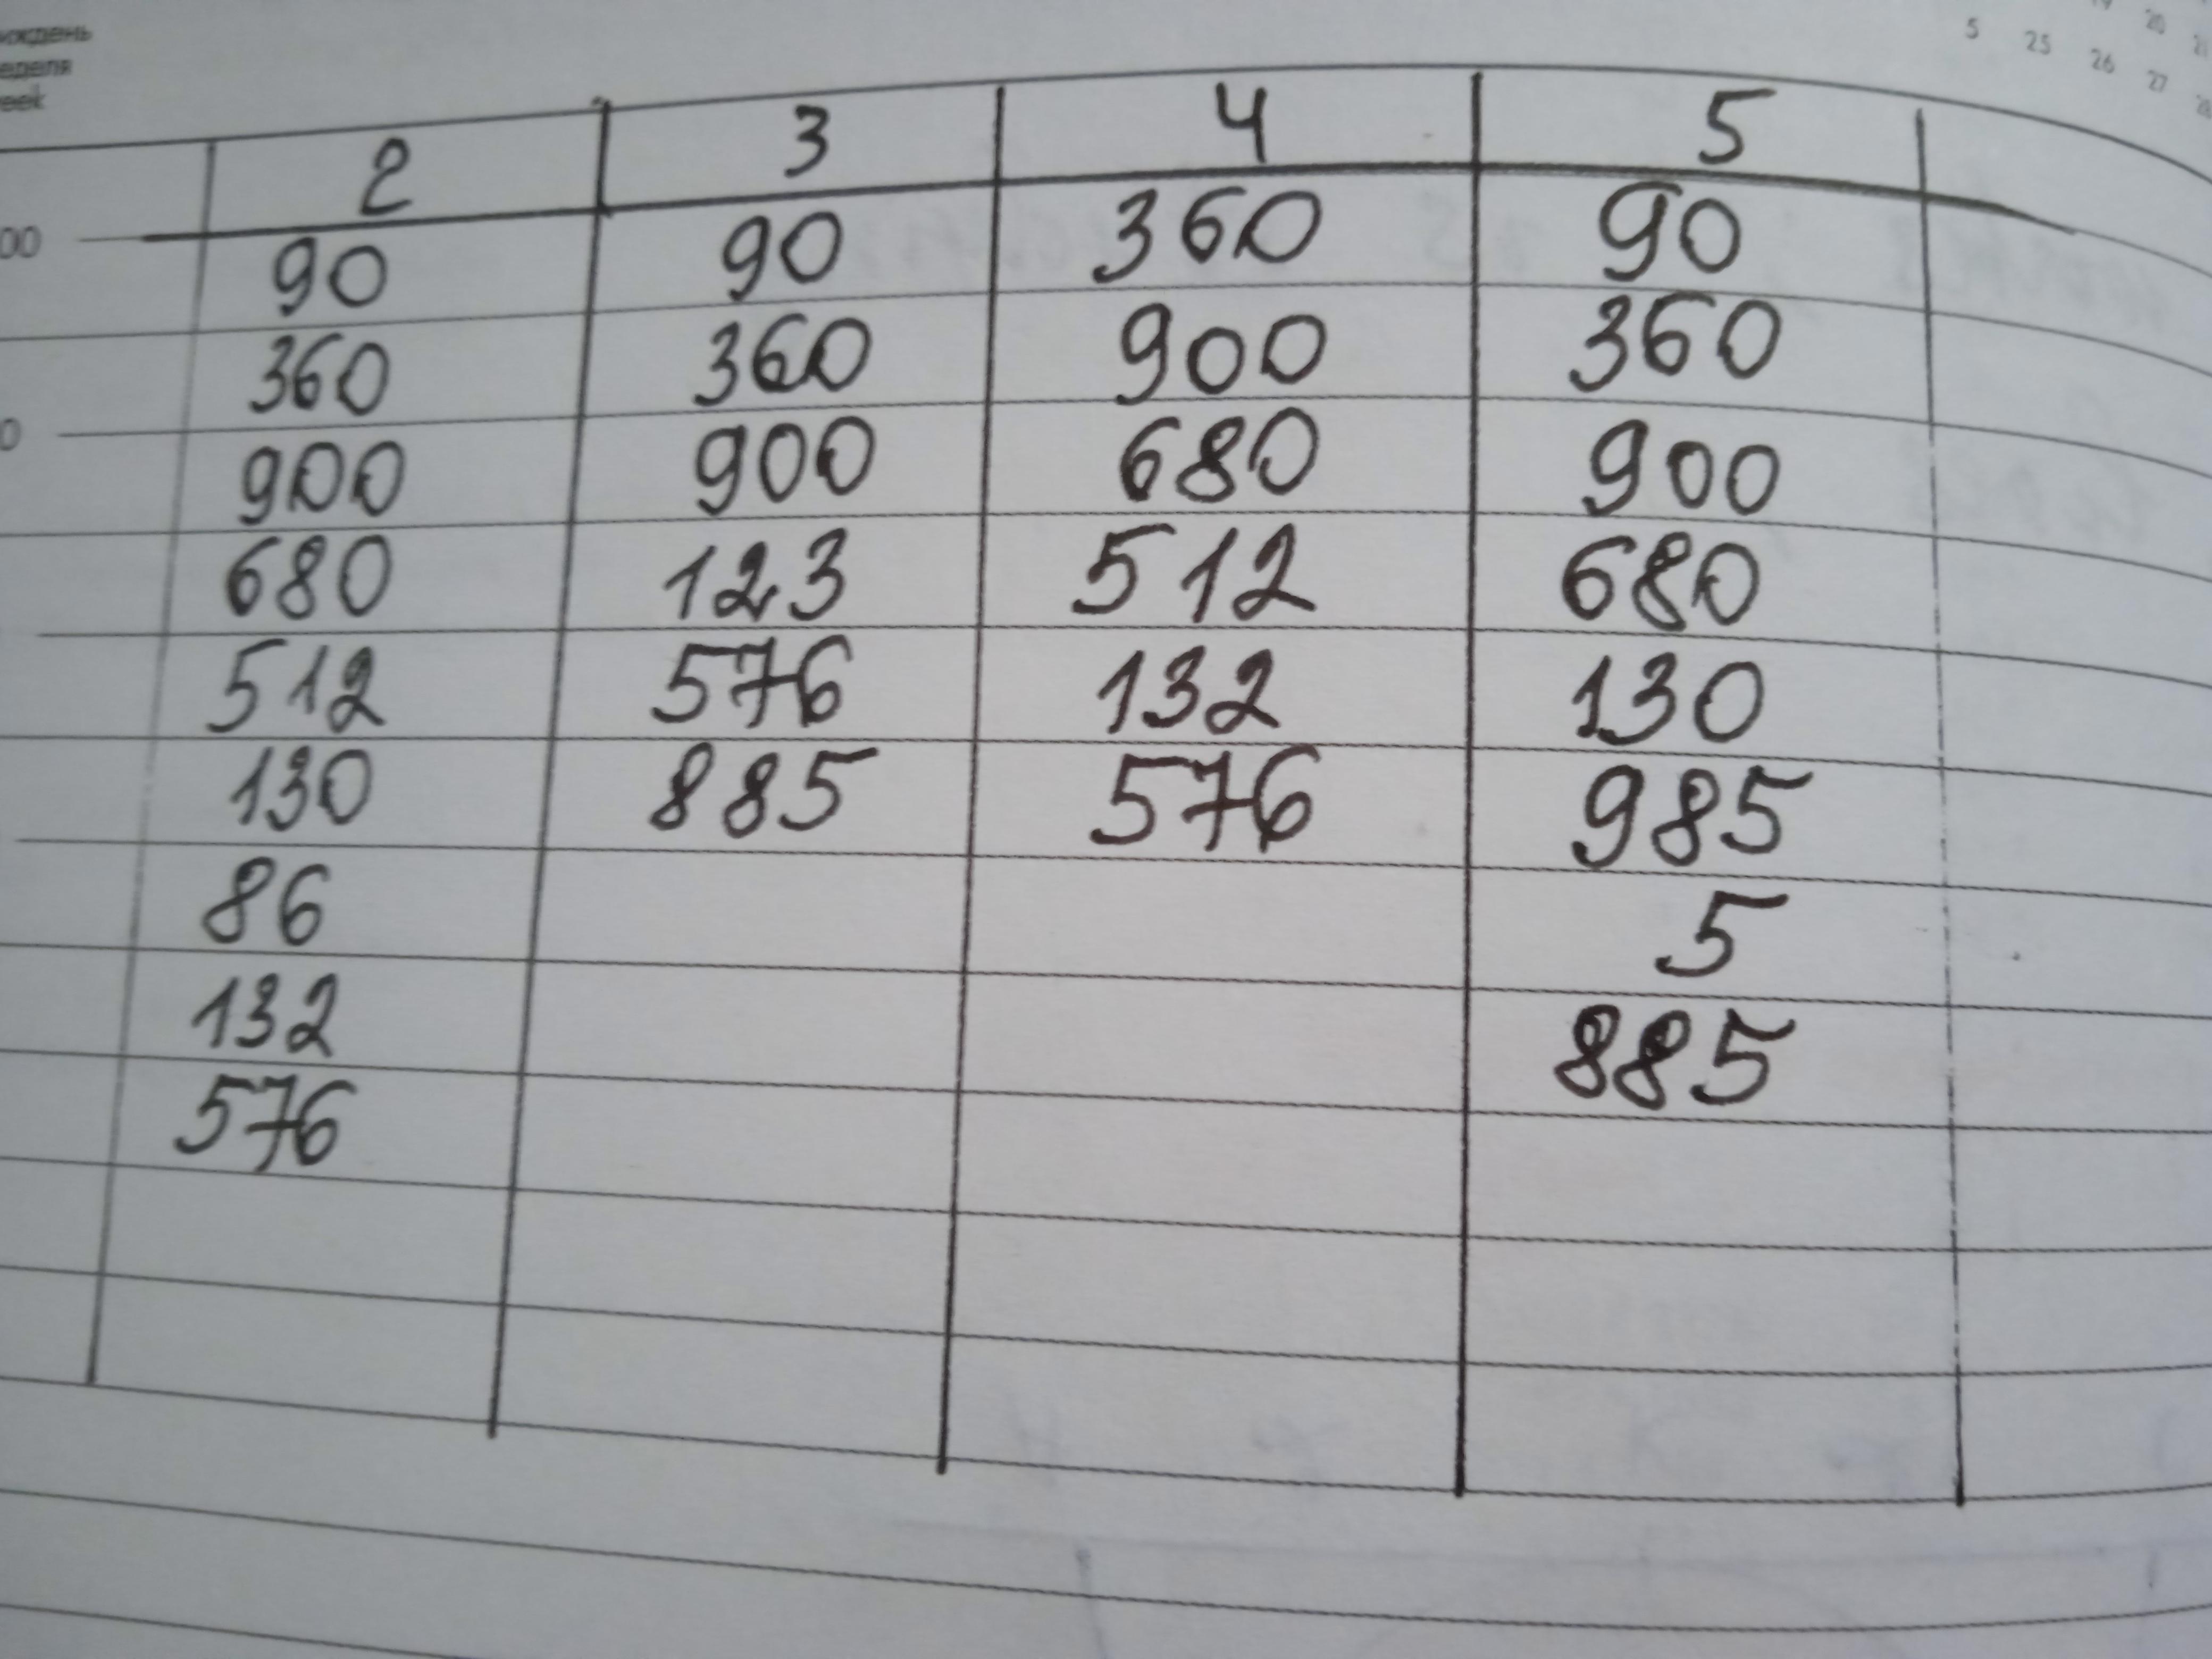 иждень
еделя
eek
19 20 21
5 25 26 27 28
2 3 4 5
00 90 90 360 90
360 360 900 360
0 900 900 680 900
680 123 512 680
512 576 132 130
130 885 576 985
86 5
132 885
576